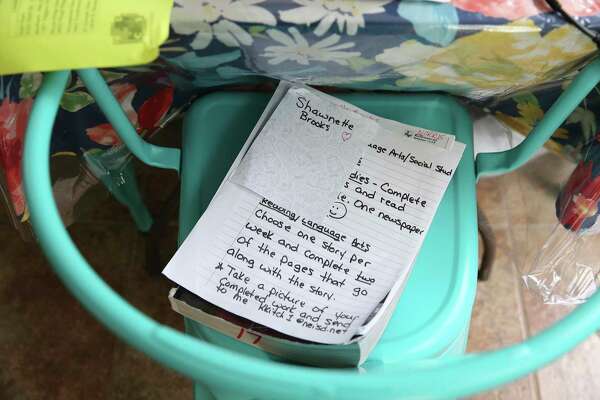 Shawnette
Brooks
age Arts/Social Stud
dies - Complete
s and read
ie. One newspaper
Reading/Language Arts
Choose one story per
week and complete two
of the pages that go
along with the story.
* Take a picture of your
completed work and send
to me kkitch1@neisd.net